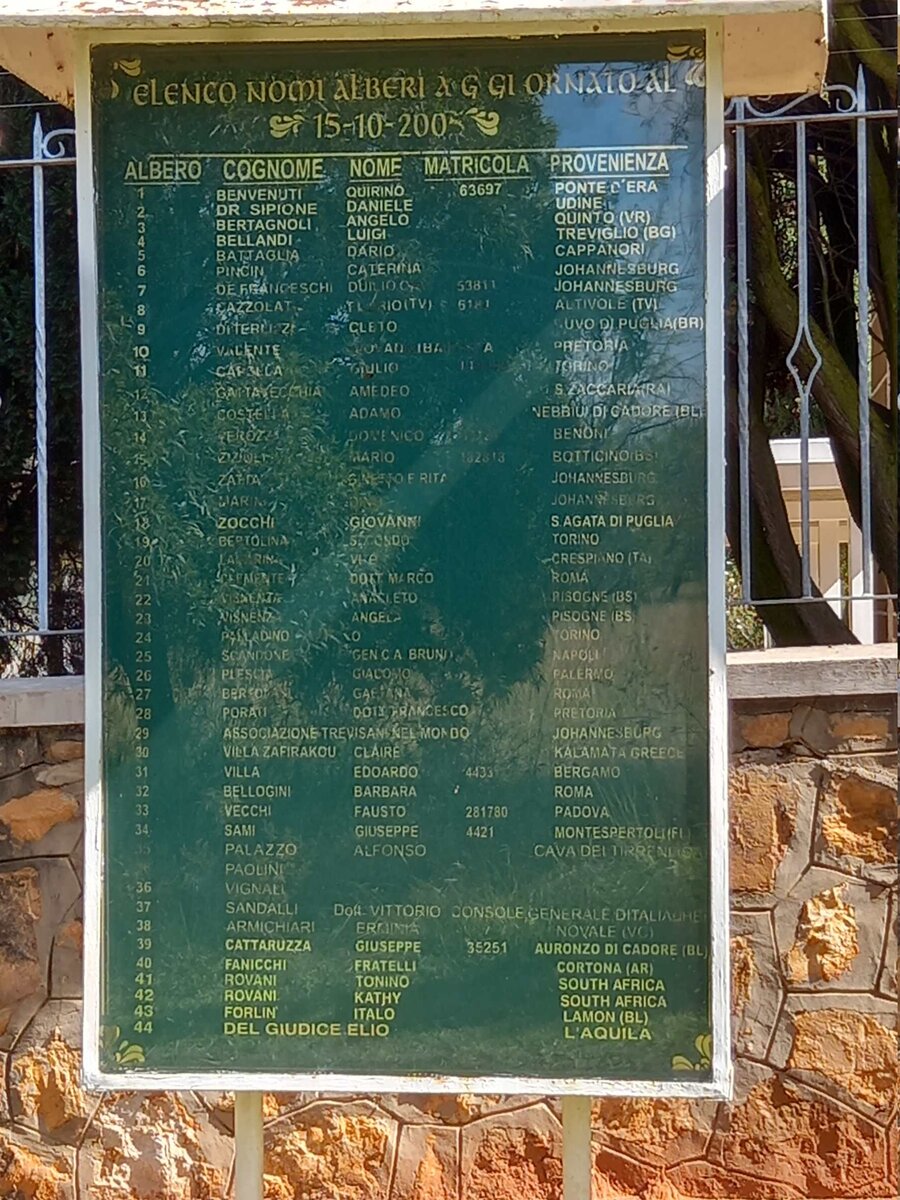 ELENCO NOMI ALBERI A G GI ORNATO AL
15-10-2005
ALBERO COGNOME NOME MATRICOLA PROVENIENZA
1 BENVENUTI QUIRINO 63697 PONTE D'ERA
2 DR SIPIONE DANIELE UDINE
3 BERTAGNOLI ANGELO QUINTO (VR)
4 BELLANDI LUIGI TREVIGLIO (BG)
5 BATTAGLIA DARIO CAPPANORI
6 PINCIN CATERINA JOHANNESBURG
7 DE FRANCESCHI DUILIO JOHANNESBURG
8 ALTIVOLE (TV)
9 CLETO DI PUGLIA(BR)
10 VALENTE PRETORIA
11 GIULIO TORINO
12 GATTAVECCHIA AMEDEO S.ZACCARIA(RA)
13 COSTELLA ADAMO NEBBIU DI CADORE (BL)
14 DOMENICO BENONI
15 ZIZIOLI MARIO BOTTICINO(BS)
16 ZATTA E RITA JOHANNESBURG
17 JOHANNESBURG
18 ZOCCHI GIOVANNI S.AGATA DI PUGLIA
19 BERTOLINA SECONDO TORINO
20 CRESPIANO (TA)
21 CLEMENTE DOTT. MARCO ROMA
22 ANACLETO PISOGNE (BS)
23 ANGELA PISOGNE (BS
24 PALLADINO TORINO
25 SCANDONE GEN C.A. BRUNO NAPOLI
26 PLESCIA GIACOMO PALERMO
27 GAETANA ROMA
28 PORATI DOTT. FRANCESCO PRETORIA
29 ASSOCIAZIONE TREVISANI NEL MONDO JOHANNESBURG
30 VILLA ZAFIRAKOU CLAIRE KALAMATA GREECE
31 VILLA EDOARDO 4433 BERGAMO
32 BELLOGINI BARBARA ROMA
33 VECCHI FAUSTO 281780 PADOVA
34 SAMI GIUSEPPE 4421 MONTESPERTOLI(FI)
35 PALAZZO ALFONSO CAVA DEI TIRRENI
PAOLINI
36 VIGNALI
37 SANDALLI Dott. VITTORIO CONSOLE GENERALE D'ITALIA
38 ARMICHIARI ERMINIA NOVALE (VC)
39 CATTARUZZA GIUSEPPE 35251 AURONZO DI CADORE (BL)
40 FANICCHI FRATELLI CORTONA (AR)
41 ROVANI TONINO SOUTH AFRICA
42 ROVANI KATHY SOUTH AFRICA
43 FORLIN ITALO LAMON (BL)
44 DEL GIUDICE ELIO L'AQUILA